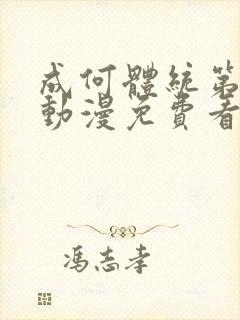 成何體統第
動漫免費看
馮志孝